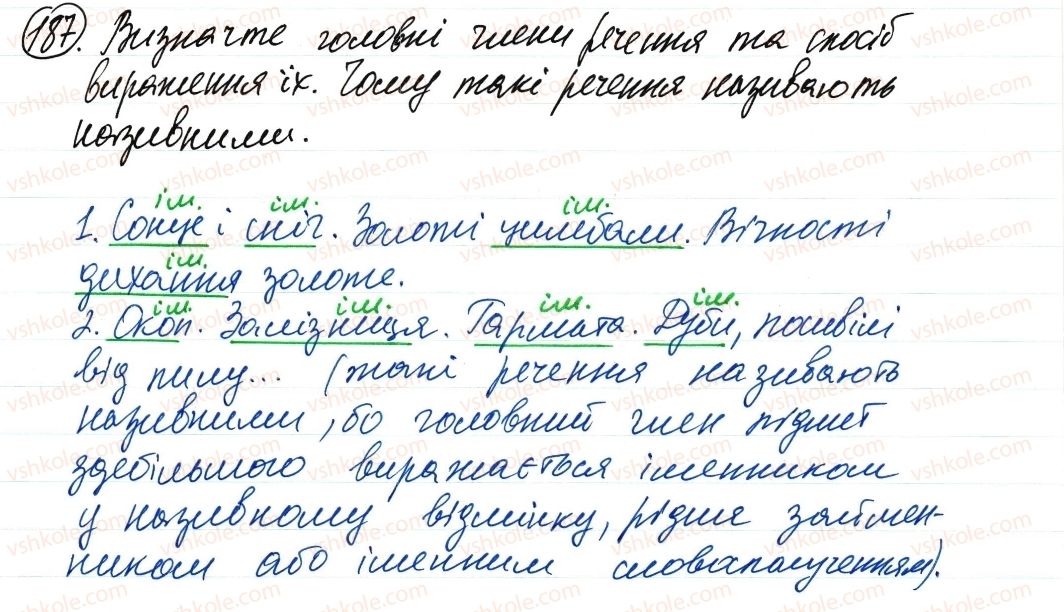 187. Визначте головні члени речення та спосіб
вираження їх. Чому такі речення називають
називними.
ім. ім. ім.
1. Сонце і сніг. Золоті цимбали. Вічності
ім.
дихання золоте.
ім. ім. ім. ім.
2. Окоп. Залізниця. Гармата. Дуби, посивілі
від пилу... (такі речення називають
називними, бо головний член підмет
здебільшого виражається іменником
у називному відмінку, рідше займен-
ником або іменним словосполученням).